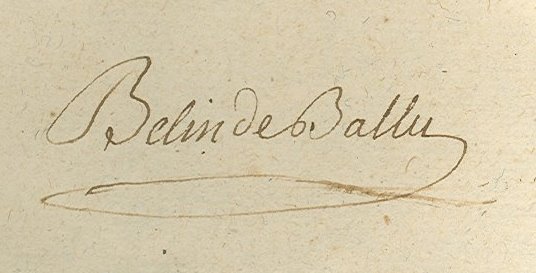 Belin de Ballu